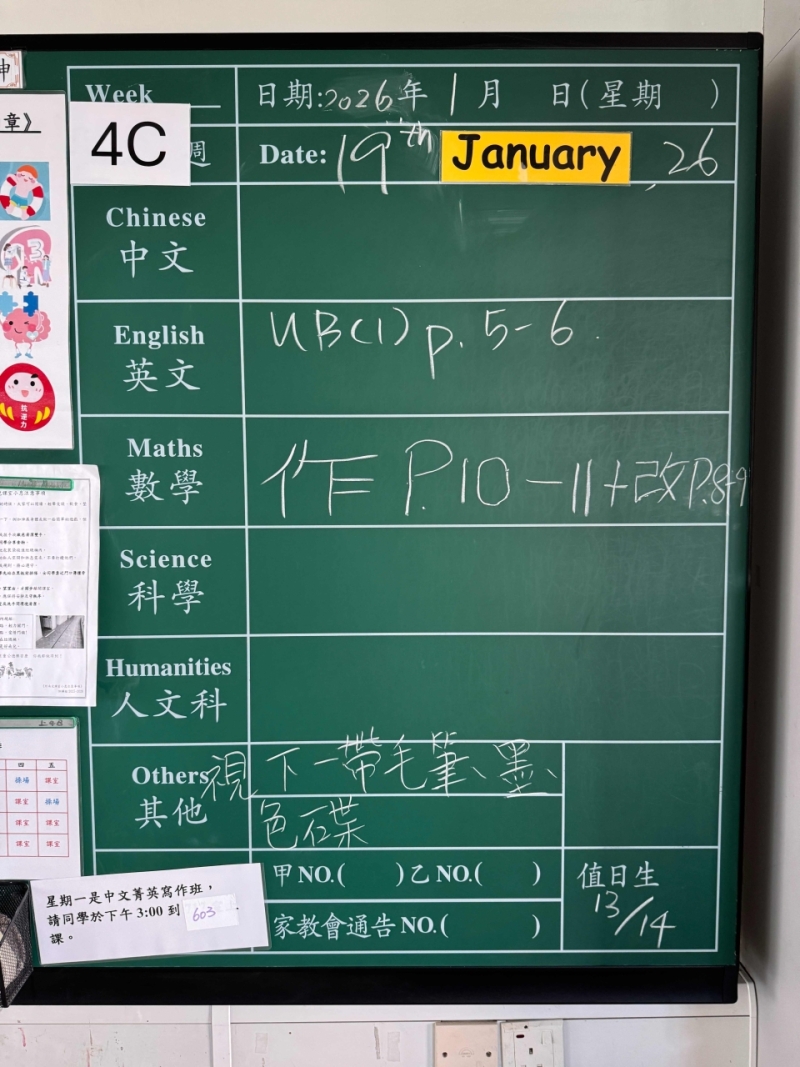 Week
日期:2026年 1月 日(星期 )
4C 週
Date: 19th January, 26
Chinese
中文
English
英文
UB(1) p. 5-6.
Maths
數學
作 P.10-11+改P.8-9
Science
科學
Humanities
人文科
Others
其他
視 下一帶毛筆、墨、
色碟
甲NO.( )乙NO.( )
家教會通告NO.( )
值日生
13/14
星期一是中文菁英寫作班，
請同學於下午 3:00 到 603
課。
章》
神
抗逆力
上午班
四 五
操場 課室
課室 操場
課室 課室
課室 課室